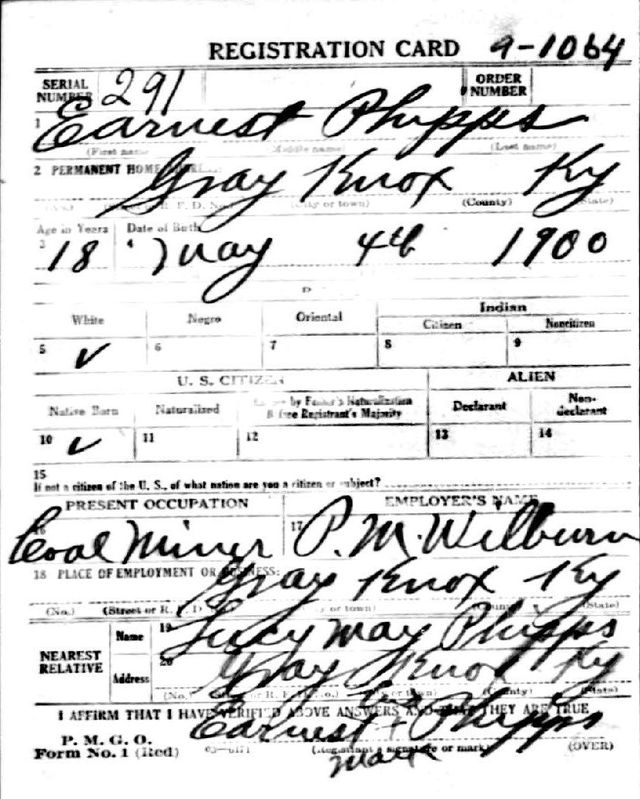 REGISTRATION CARD 9-1064
SERIAL NUMBER 291 ORDER NUMBER
1 Earnest Phipps
(First name) (Middle name) (Last name)
2 PERMANENT HOME Gray Knox Ky
(City or town) (County) (State)
Age in Years Date of Birth
3 18 4 May 4th 1900
Indian
White Negro Oriental Citizen Noncitizen
5 ✓ 6 7 8 9
U. S. CITIZEN ALIEN
Native Born Naturalized by Father's Naturalization Before Registrant's Majority Declarant Non-declarant
10 ✓ 11 12 13 14
15
If not a citizen of the U. S., of what nation are you a citizen or subject?
PRESENT OCCUPATION EMPLOYER'S NAME
Coal Miner 17 P. M. Wilburn
18 PLACE OF EMPLOYMENT OR BUSINESS:
Gray Knox Ky
(No.) (Street or R. F. D. (State)
NEAREST RELATIVE Name 19 Lucy May Phipps
Address 20 Gray Knox Ky
(No.) (County) (State)
I AFFIRM THAT I HAVE VERIFIED ABOVE ANSWERS AND THAT THEY ARE TRUE
P. M. G. O.
Form No. 1 (Red) Earnest + Phipps
(Registrant's signature or mark) (OVER)
mark